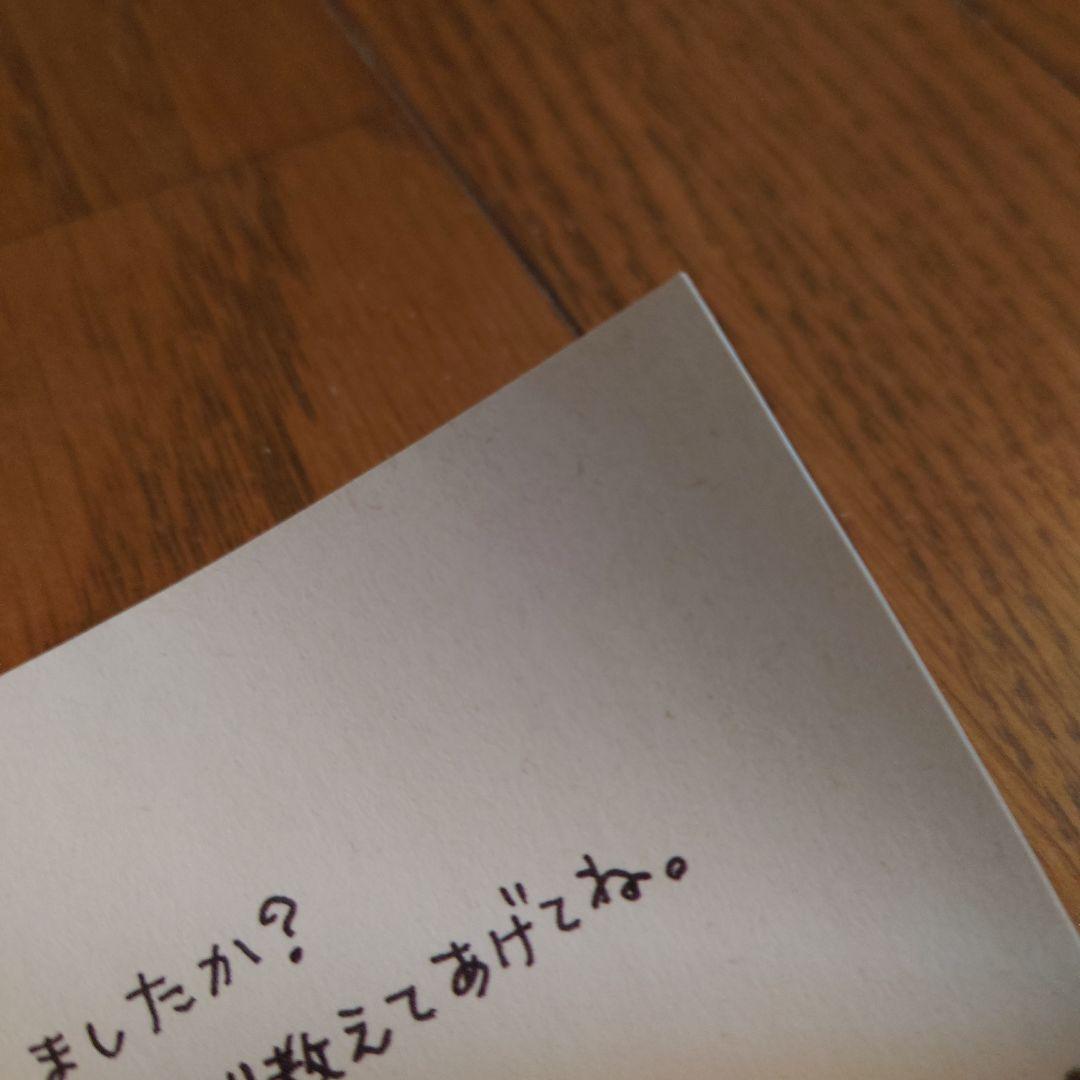 ましたか?
教えてあげてね。